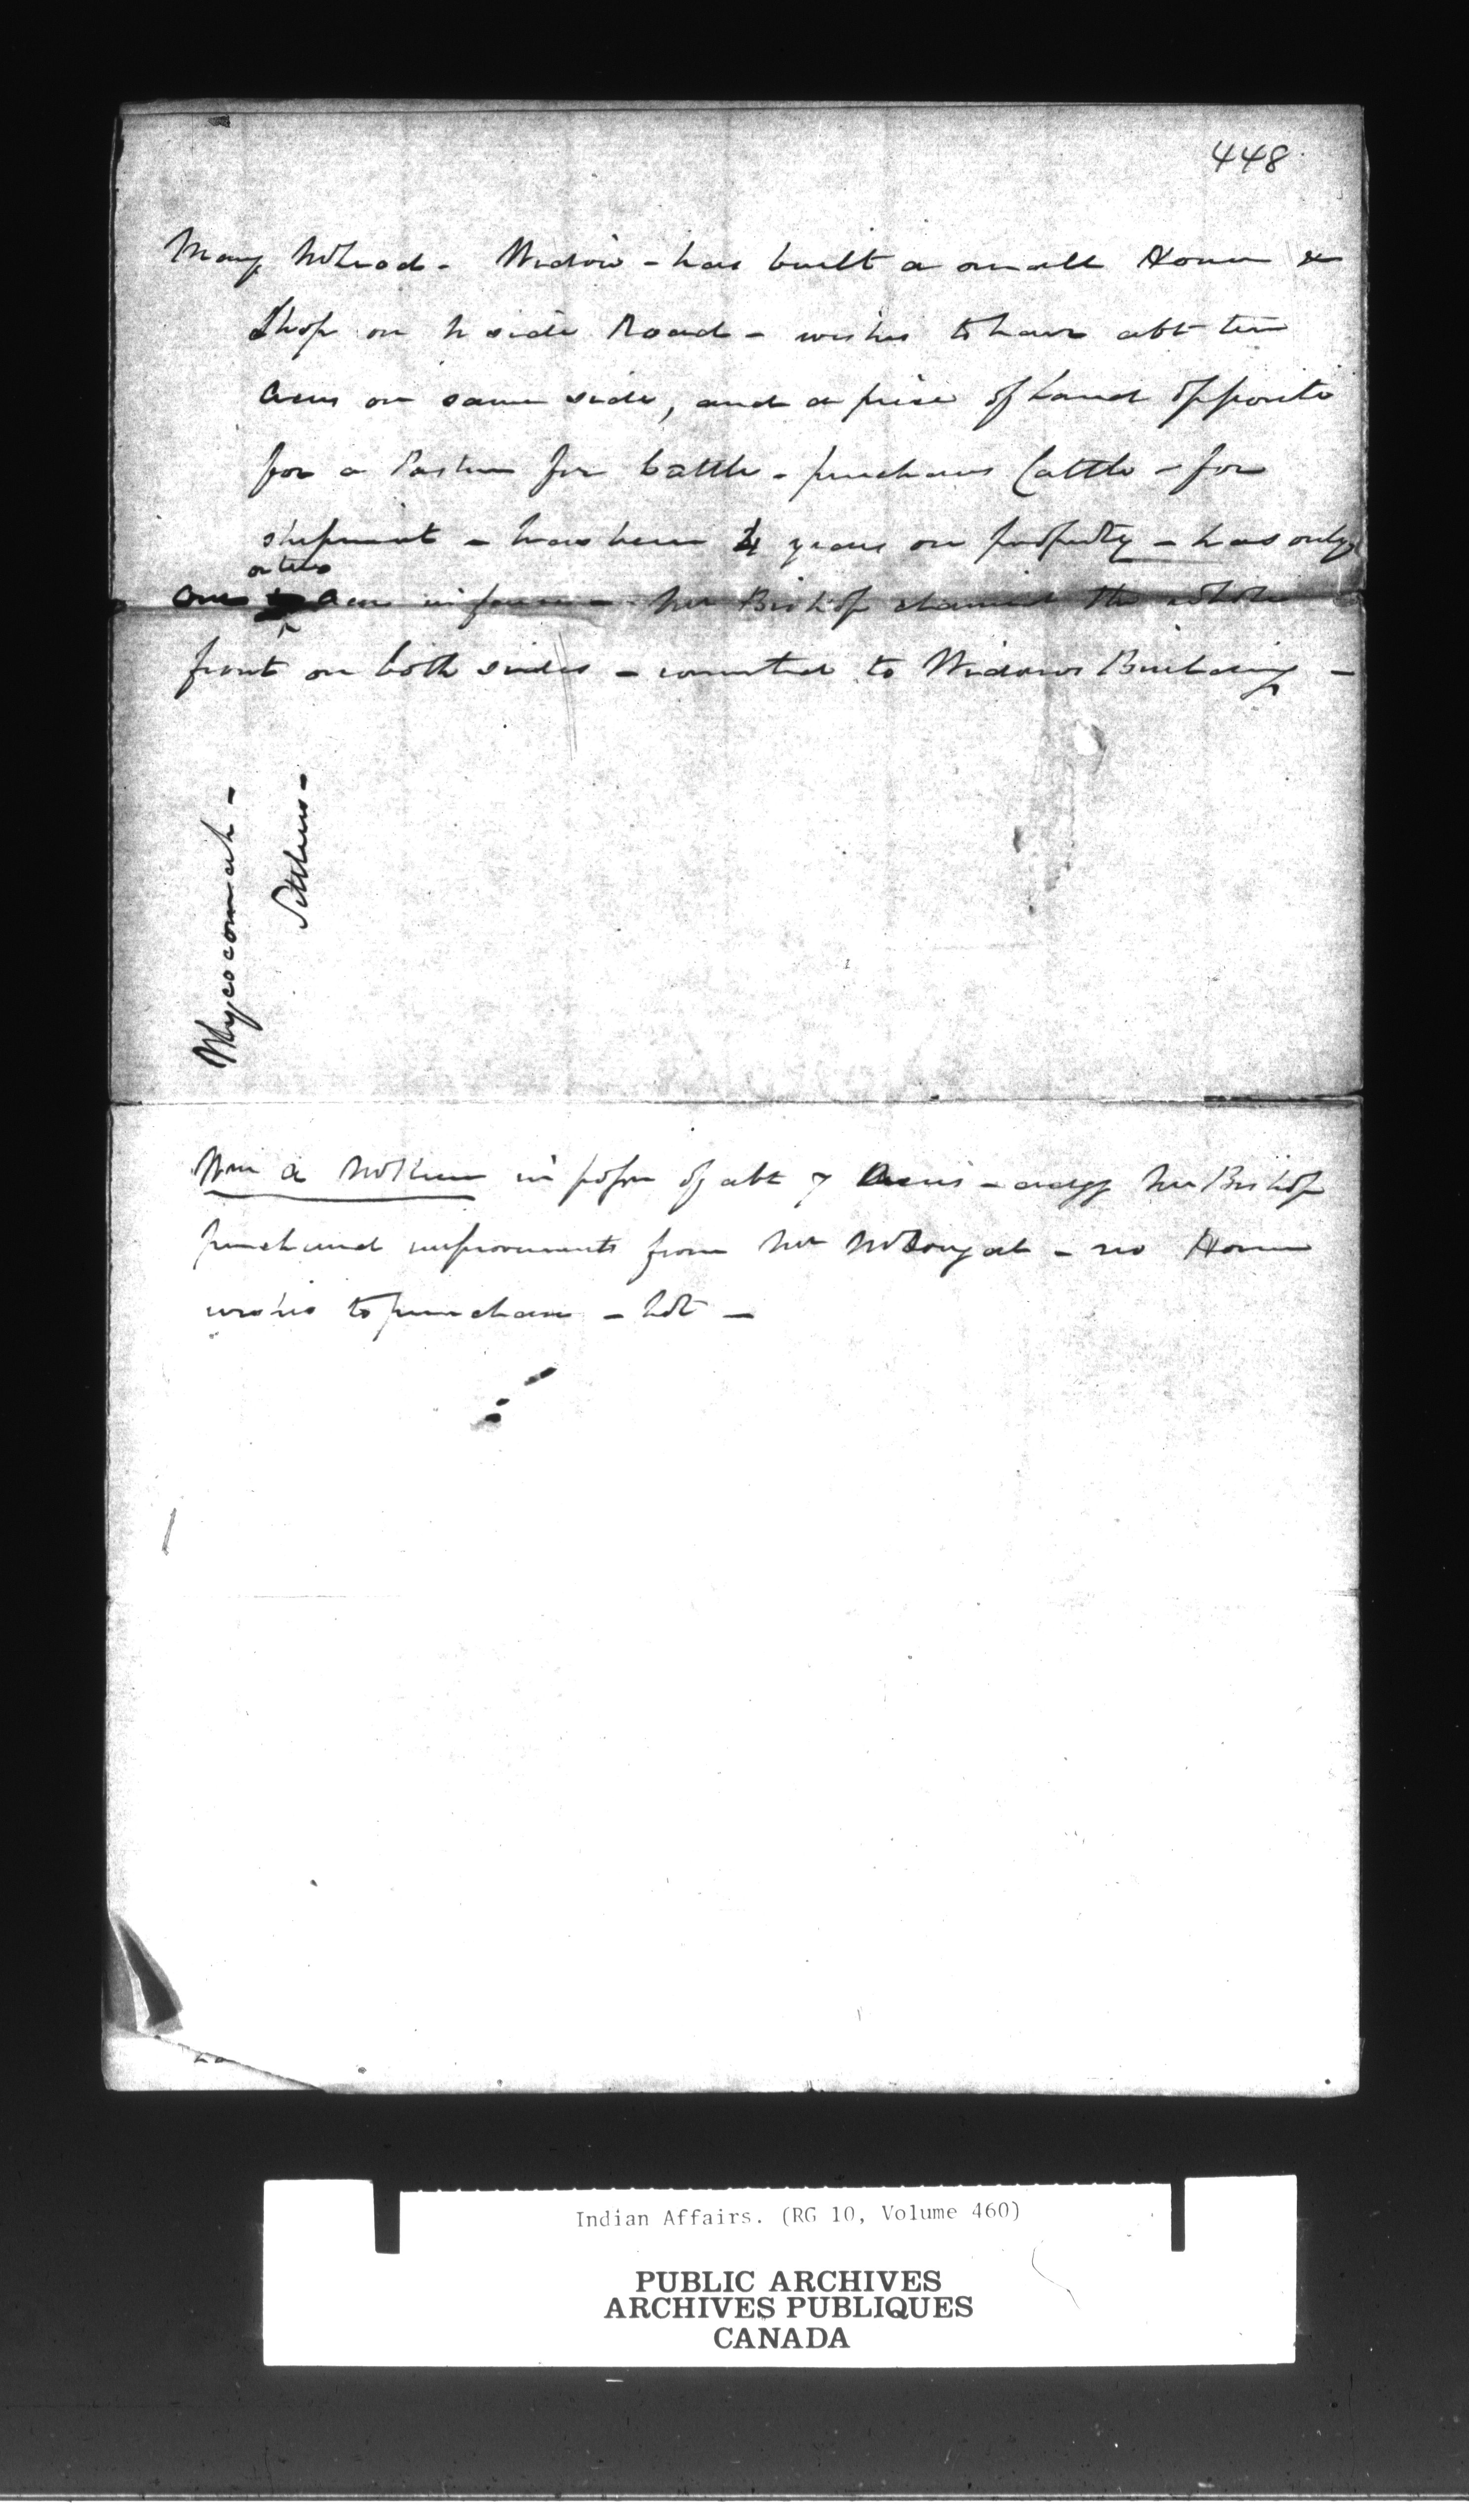 448
Mary McLeod - Widow - has built a small House &
Shop on N side Road - wishes to have abt ten
acres on same side, and a piece of Land opposite
for a Pasture for Cattle - purchases Cattle - for
shipment - has been 4 years on property - has only
or two
one acre in fence - Mr Bishop claimed the whole
front on both sides - consented to Widows Building -
Whycocomah -
Settlers -
Wm A McKeen in possn of abt 7 Acres - Mr Bishop
purchased improvements from Mr McDougall - no House
wishes to purchase - lot -
Indian Affairs. (RG 10, Volume 460)
PUBLIC ARCHIVES
ARCHIVES PUBLIQUES
CANADA